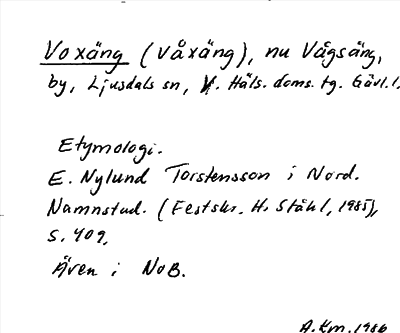 Voxäng (Våxäng), nu Vågsäng,
by, Ljusdals sn, V. Häls. doms. tg. Gävl. l.
Etymologi.
E. Nylund Torstensson i Nord.
Namnstud. (Festskr. H. Ståhl, 1985),
s. 409.
Även i NoB.
A.Km. 1986